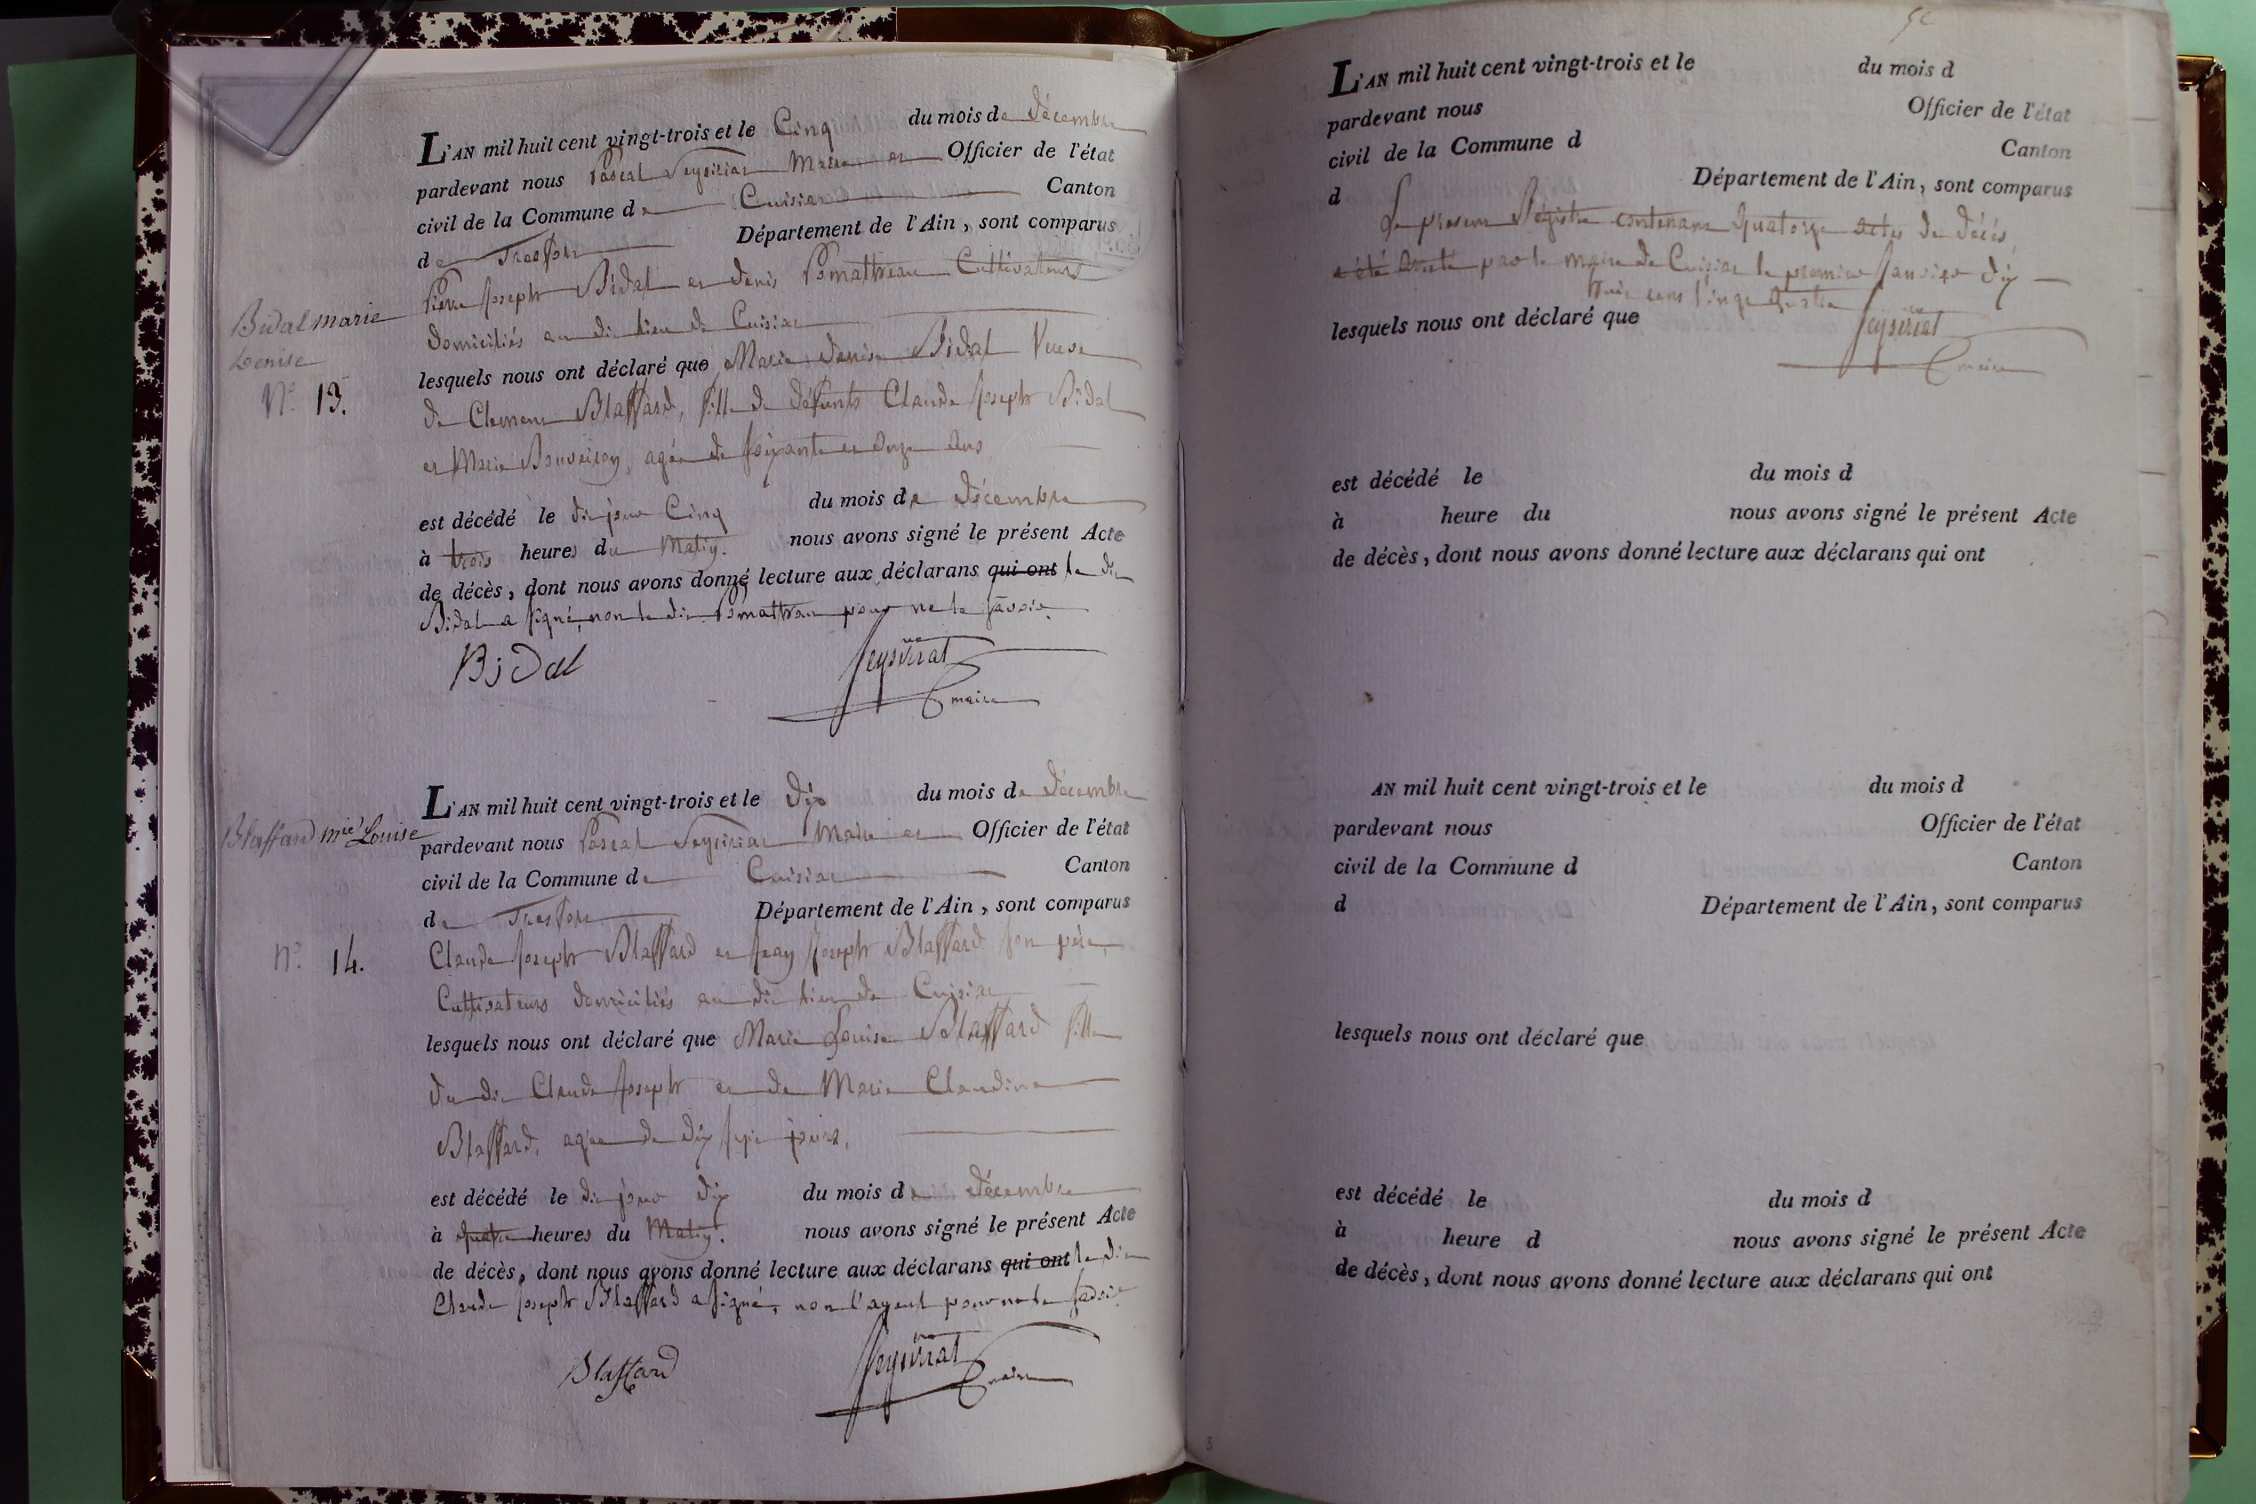 L'AN mil huit cent vingt-trois et le Cinq du mois de décembre
pardevant nous Pascal Seyssiat Maire et Officier de l'état
civil de la Commune de Cuisiat Canton
de Treffort Département de l'Ain, sont comparus
Pierre Joseph Bidal et denis Pomathieu Cultivateurs
Domiciliés au dit lieu de Cuisiat
lesquels nous ont déclaré que Marie denise Bidal Veuve
de Clement Blaffard, fille de défunts Claude Joseph Bidal
et Marie Bouveiron, agée de soixante et onze ans
Bidal marie
Denise
N.º 13.
est décédé le dit jour Cinq du mois de décembre
à trois heures du Matin. nous avons signé le présent Acte
de décès, dont nous avons donné lecture aux déclarans qui ont le dit
Bidal a signé, non le dit Pomathieu pour ne le savoir.
Bidal
maire
L'AN mil huit cent vingt-trois et le dix du mois de décembre
pardevant nous Pascal Seyssiat Maire et Officier de l'état
civil de la Commune de Cuisiat Canton
de Treffort Département de l'Ain, sont comparus
Claude Joseph Blaffard et Jean Joseph Blaffard son père,
Cultivateurs domiciliés au dit lieu de Cuisiat
lesquels nous ont déclaré que Marie Louise Blaffard fille
du dit Claude Joseph et de Marie Claudine
Blaffard, agée de dix sept jours,
Blaffard mie Louise
N.º 14.
est décédé le dit jour dix du mois de décembre
à quatre heures du Matin. nous avons signé le présent Acte
de décès, dont nous avons donné lecture aux déclarans qui ont le dit
Claude Joseph Blaffard a signé, non l'ayeul pour ne le savoir
Blaffard
maire
L'AN mil huit cent vingt-trois et le du mois d
pardevant nous Officier de l'état
civil de la Commune d Canton
d Département de l'Ain, sont comparus
Le present Régistre contenant quatorze actes de décès,
a été arrêté par le maire de Cuisiat le premier Janvier dix
huit cent vingt quatre
lesquels nous ont déclaré que
maire
est décédé le du mois d
à heure du nous avons signé le présent Acte
de décès, dont nous avons donné lecture aux déclarans qui ont
AN mil huit cent vingt-trois et le du mois d
pardevant nous Officier de l'état
civil de la Commune d Canton
d Département de l'Ain, sont comparus
lesquels nous ont déclaré que
est décédé le du mois d
à heure d nous avons signé le présent Acte
de décès, dont nous avons donné lecture aux déclarans qui ont